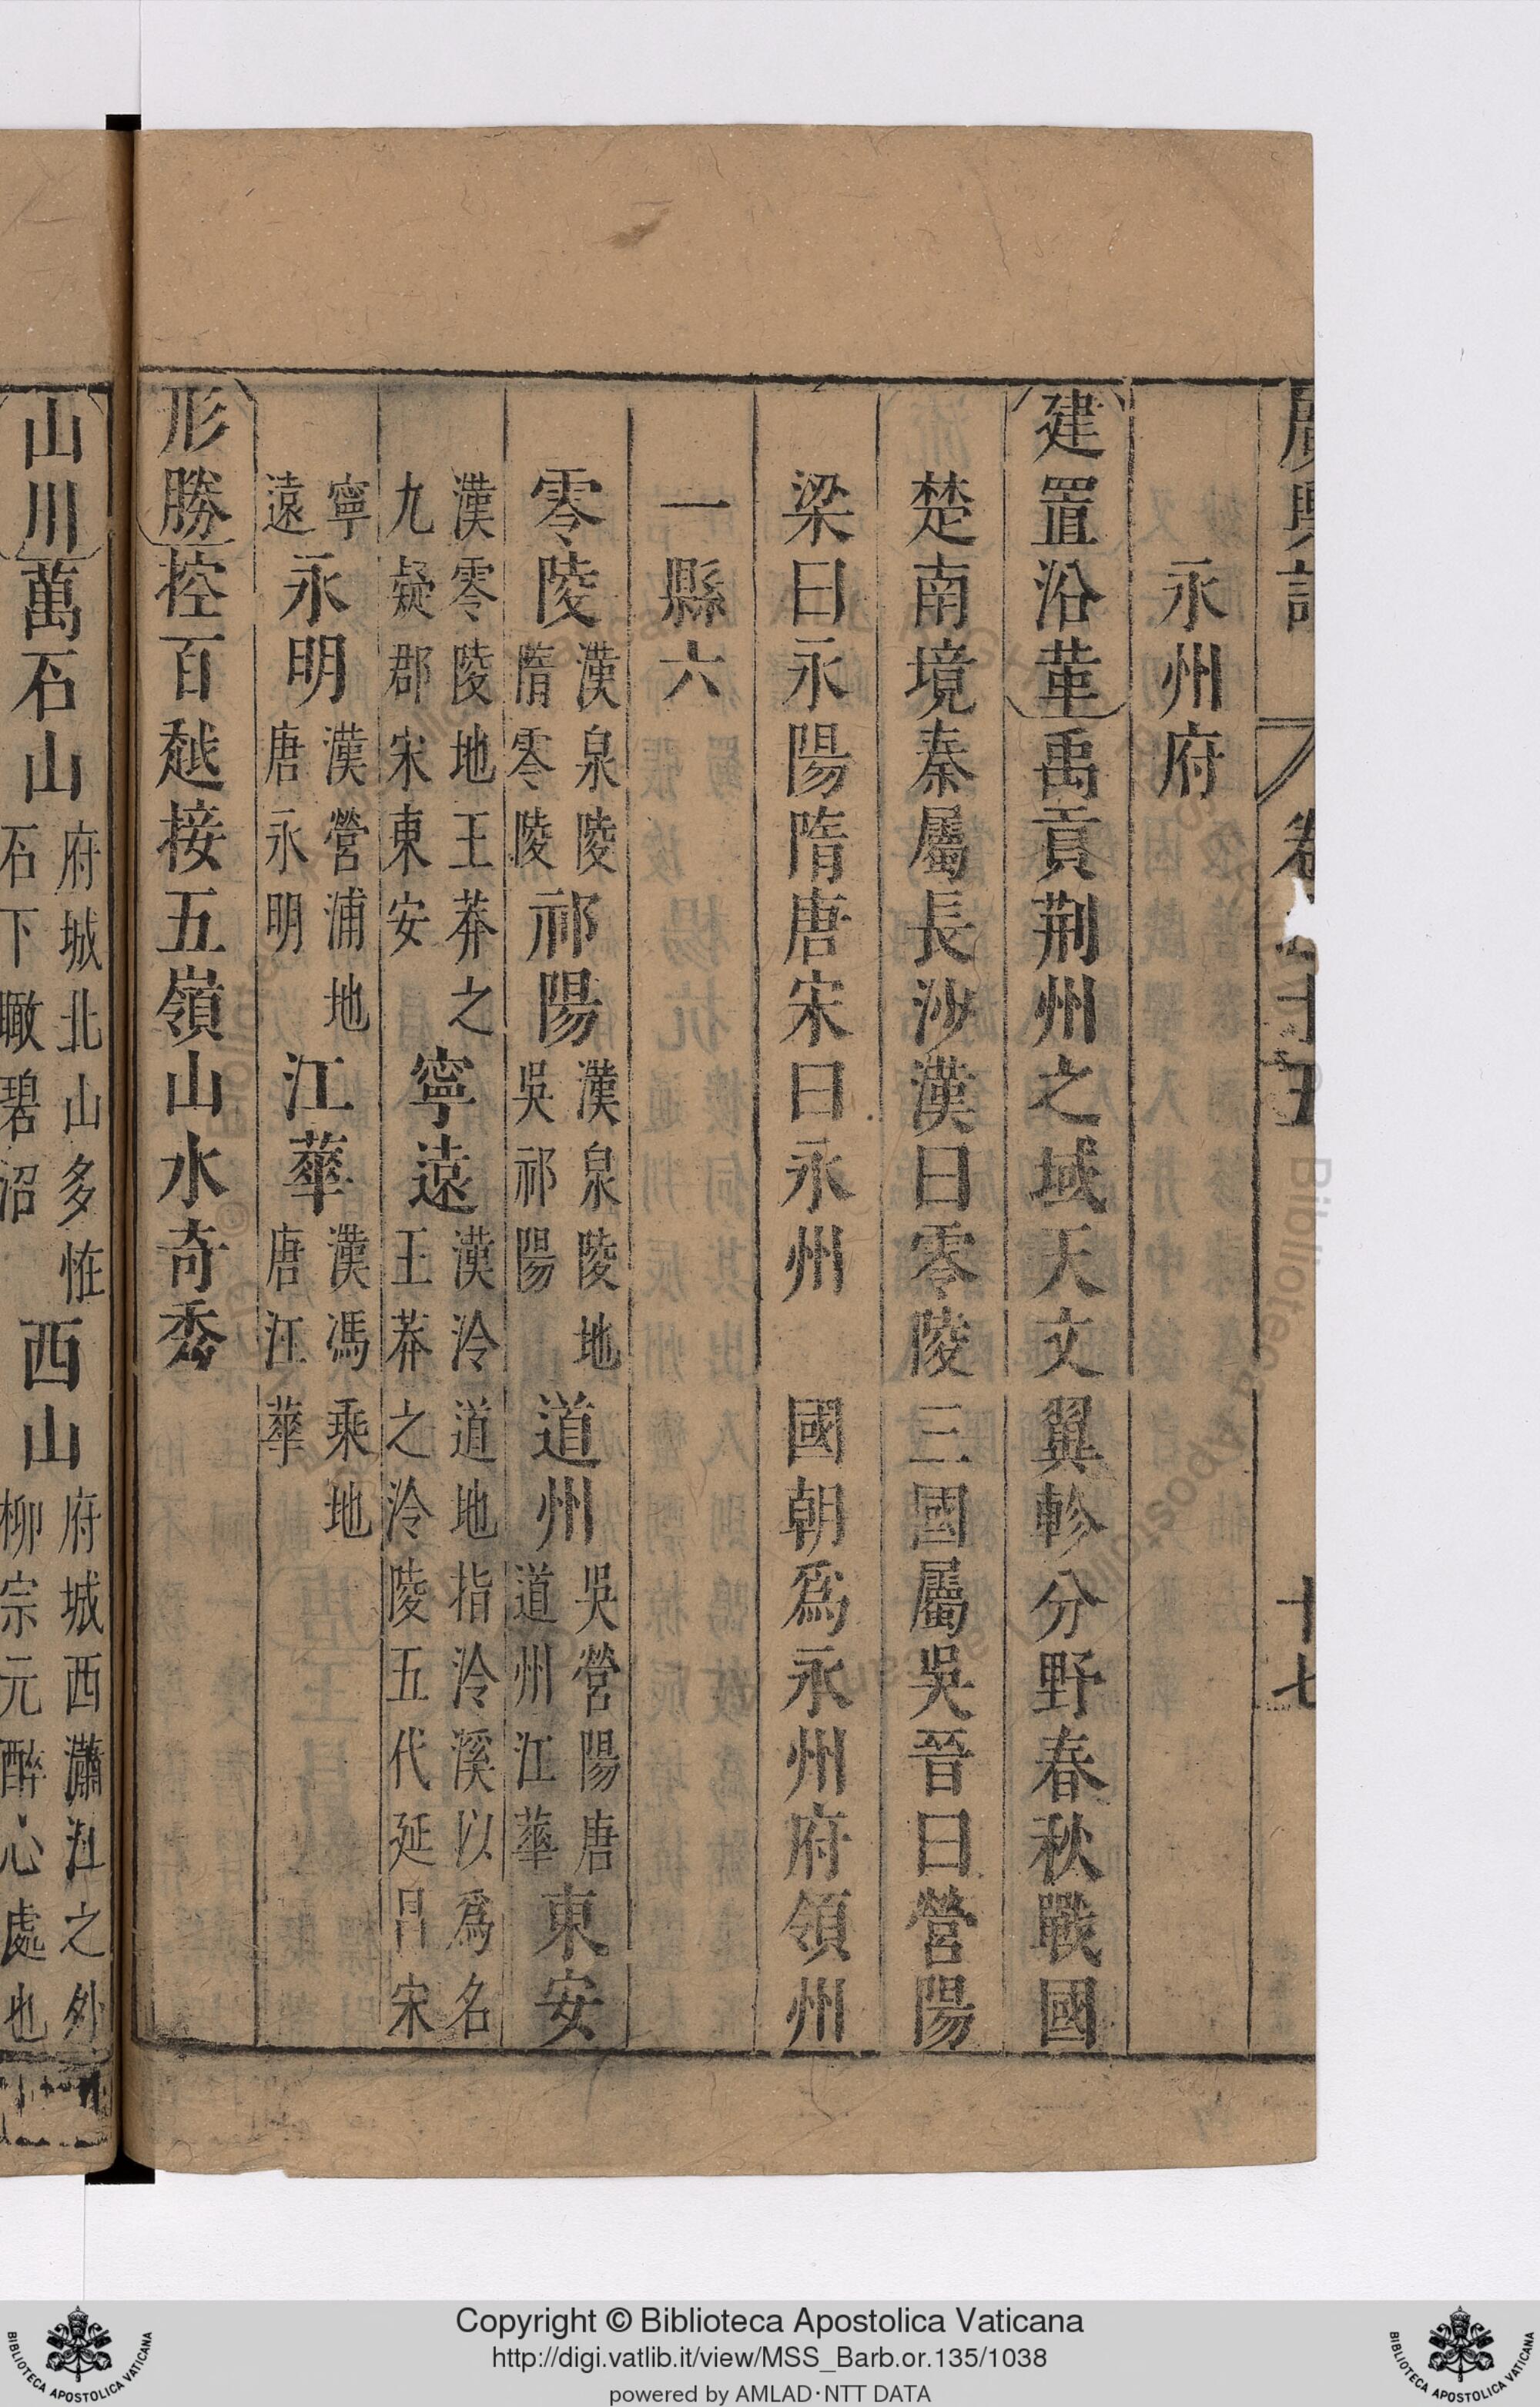 廣輿記 卷 十五 十七
永州府
建置沿革禹貢荆州之域天文翼軫分野春秋戰國
楚南境秦屬長沙漢曰零陵三國屬吳晉曰營陽
梁曰永陽隋唐宋曰永州 國朝爲永州府領州
一縣六
零陵漢泉陵隋零陵祁陽漢泉陵地吳祁陽道州吳營陽唐道州江華東安
漢零陵地王莽之九疑郡宋東安寧遠漢泠道地指泠溪以爲名王莽之泠陵五代延昌宋
寧遠永明漢營浦地唐永明江華漢馮乘地唐江華
形勝控百越接五嶺山水奇秀
山川萬石山府城北山多恠石下瞰碧沼西山府城西瀟江之外柳宗元醉心處也
Copyright © Biblioteca Apostolica Vaticana
http://digi.vatlib.it/view/MSS_Barb.or.135/1038
powered by AMLAD·NTT DATA
BIBLIOTECA APOSTOLICA VATICANA
BIBLIOTECA APOSTOLICA VATICANA